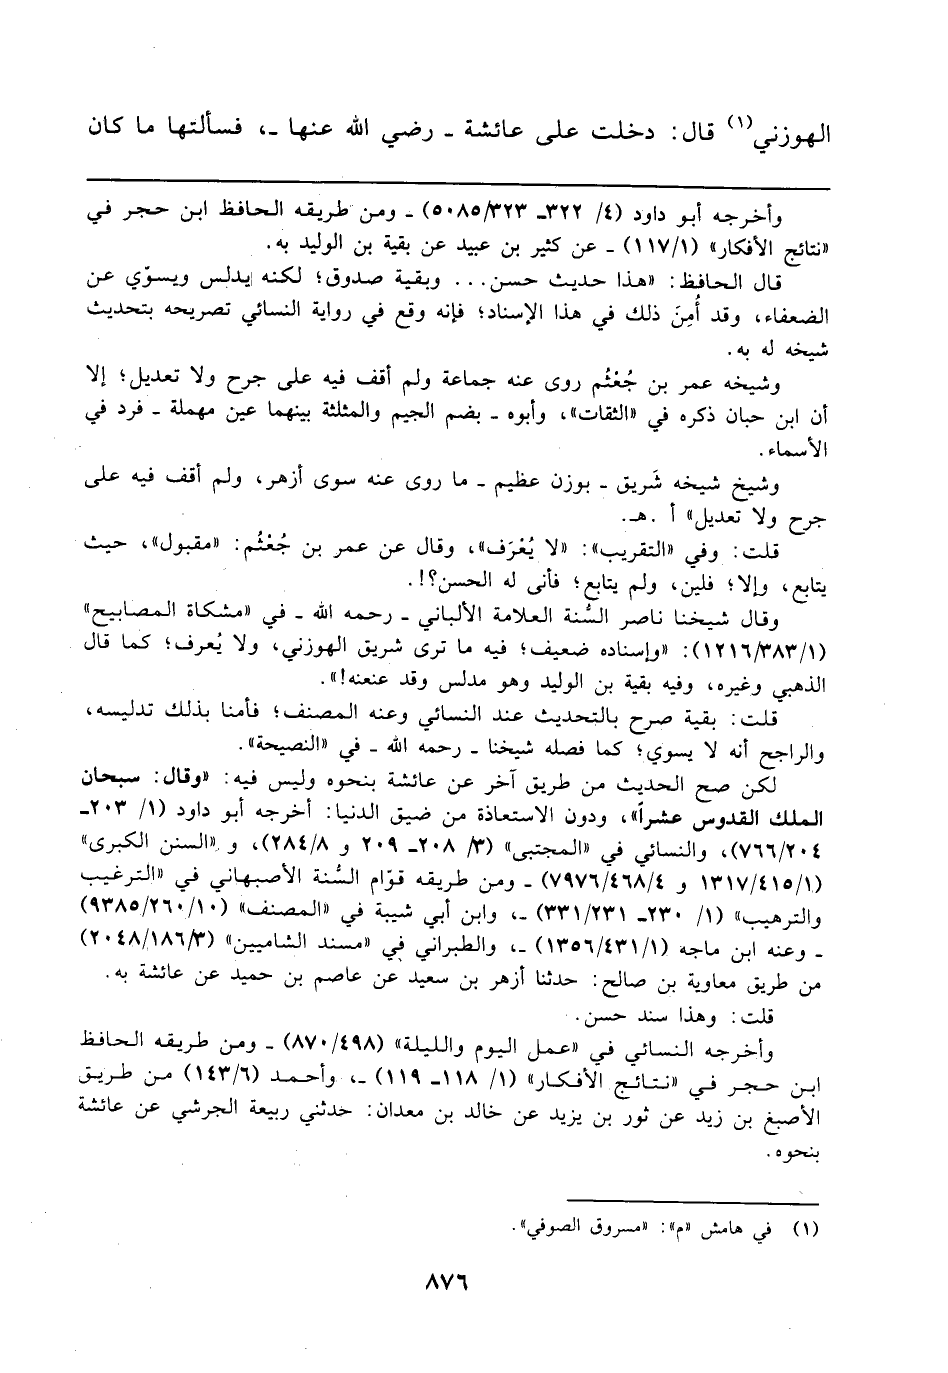 الهوزني(١) قال: دخلت على عائشة ـ رضي الله عنها ـ، فسألتها ما كان
وأخرجه أبو داود (٤/ ٣٢٢ـ ٥٠٨٥/٣٢٣) ـ ومن طريقه الحافظ ابن حجر في
«نتائج الأفكار» (١١٧/١) ـ عن كثير بن عبيد عن بقية بن الوليد به.
قال الحافظ: «هذا حديث حسن... وبقية صدوق؛ لكنه يدلس ويسوّي عن
الضعفاء، وقد أُمِنَ ذلك في هذا الإسناد؛ فإنه وقع في رواية النسائي تصريحه بتحديث
شيخه له به.
وشيخه عمر بن جُعْثُم روى عنه جماعة ولم أقف فيه على جرح ولا تعديل؛ إلا
أن ابن حبان ذكره في «الثقات»، وأبوه ـ بضم الجيم والمثلثة بينهما عين مهملة ـ فرد في
الأسماء.
وشيخ شيخه شَريق ـ بوزن عظيم ـ ما روى عنه سوى أزهر، ولم أقف فيه على
جرح ولا تعديل» أ .هـ.
قلت: وفي «التقريب»: «لا يُعْرَف»، وقال عن عمر بن جُعْثُم: «مقبول»، حيث
يتابع، وإلا؛ فلين، ولم يتابع؛ فأنى له الحسن؟!.
وقال شيخنا ناصر السُّنة العلامة الألباني ـ رحمه الله ـ في «مشكاة المصابيح»
(١٢١٦/٣٨٣/١): «وإسناده ضعيف؛ فيه ما ترى شريق الهوزني، ولا يُعرف؛ كما قال
الذهبي وغيره، وفيه بقية بن الوليد وهو مدلس وقد عنعنه!».
قلت: بقية صرح بالتحديث عند النسائي وعنه المصنف؛ فأمنا بذلك تدليسه،
والراجح أنه لا يسوي؛ كما فصله شيخنا ـ رحمه الله ـ في «النصيحة».
لكن صح الحديث من طريق آخر عن عائشة بنحوه وليس فيه: «وقال: سبحان
الملك القدوس عشراً»، ودون الاستعاذة من ضيق الدنيا: أخرجه أبو داود (١/ ٢٠٣ـ
٧٦٦/٢٠٤)، والنسائي في «المجتبى» (٣/ ٢٠٨ـ ٢٠٩ و ٢٨٤/٨)، و «السنن الكبرى»
(١٣١٧/٤١٥/١ و ٧٩٧٦/٤٦٨/٤) ـ ومن طريقه قوّام السُّنة الأصبهاني في «الترغيب
والترهيب» (١/ ٢٣٠ـ ٣٣١/٢٣١) ـ، وابن أبي شيبة في «المصنف» (٩٣٨٥/٢٦٠/١٠)
ـ وعنه ابن ماجه (١٣٥٦/٤٣١/١) ـ، والطبراني في «مسند الشاميين» (٢٠٤٨/١٨٦/٣)
من طريق معاوية بن صالح: حدثنا أزهر بن سعيد عن عاصم بن حميد عن عائشة به.
قلت: وهذا سند حسن.
وأخرجه النسائي في «عمل اليوم والليلة» (٨٧٠/٤٩٨) ـ ومن طريقه الحافظ
ابن حجر في «نتائج الأفكار» (١/ ١١٨ـ ١١٩) ـ، وأحمد (١٤٣/٦) من طريق
الأصبغ بن زيد عن ثور بن يزيد عن خالد بن معدان: حدثني ربيعة الجرشي عن عائشة
بنحوه.
(١) في هامش «م»: «مسروق الصوفي».
٨٧٦